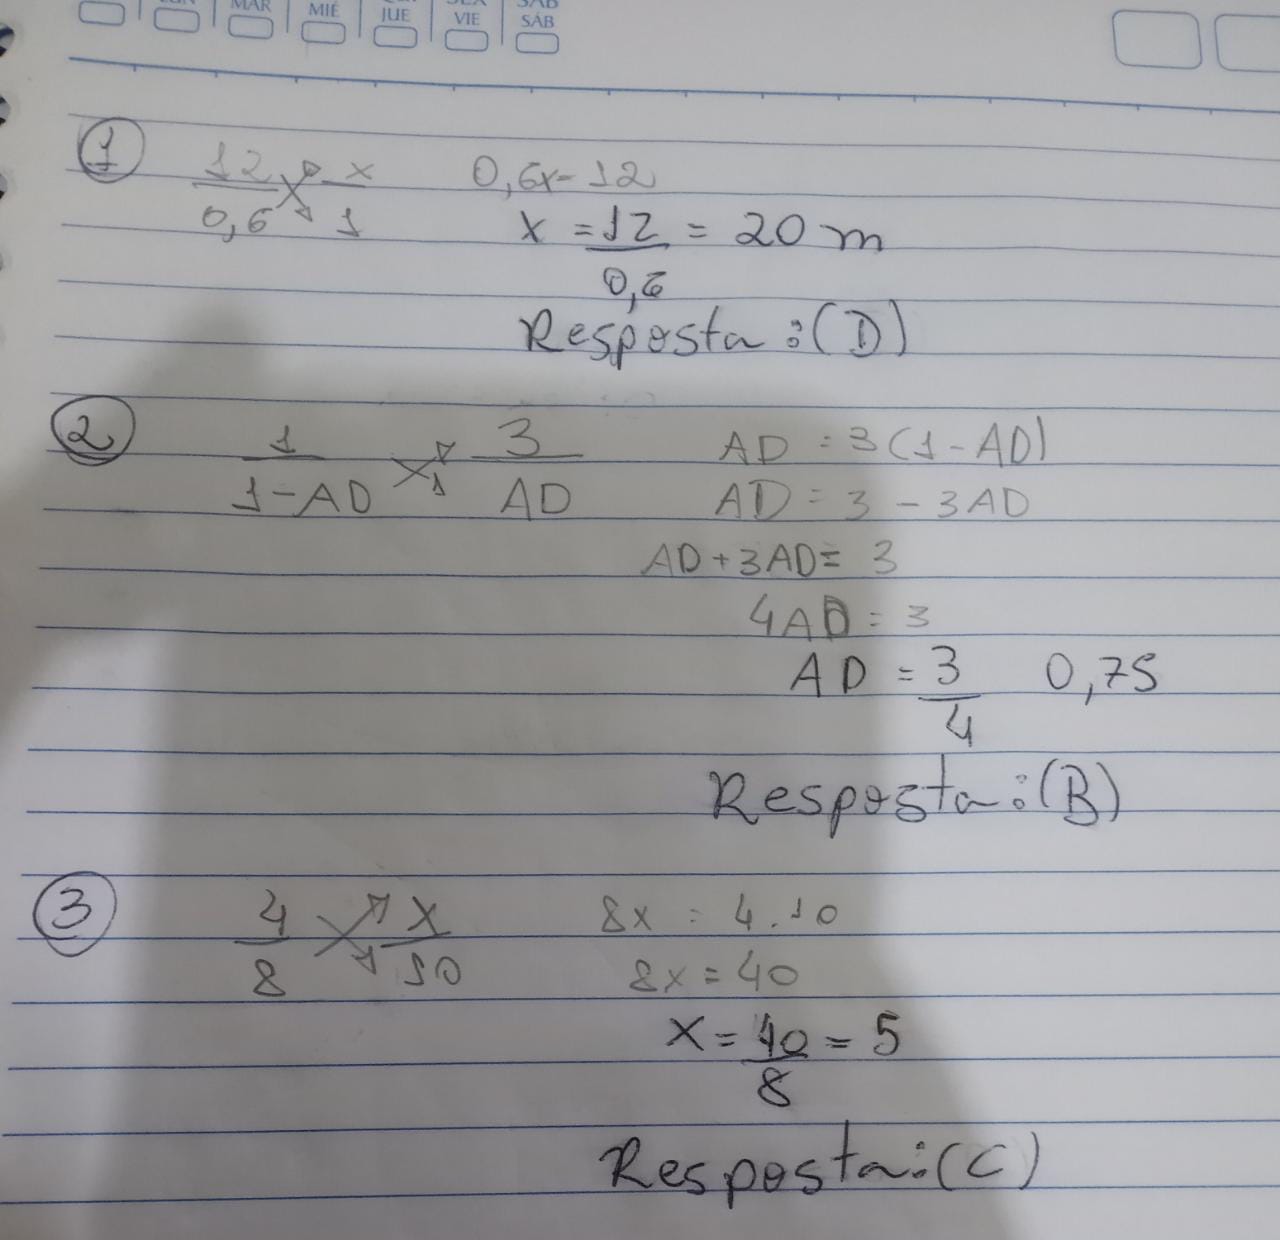 MAR MIÉ JUE VIE SÁB
1 12/0,6 x/1 0,6x=12
x = 12/0,6 = 20 m
Resposta:(D)
2 1/1-AD 3/AD AD = 3(1-AD)
AD = 3 - 3AD
AD+3AD= 3
4AD = 3
AD = 3/4 0,75
Resposta:(B)
3 4/8 x/10 8x = 4.10
8x = 40
x = 40/8 = 5
Resposta:(C)